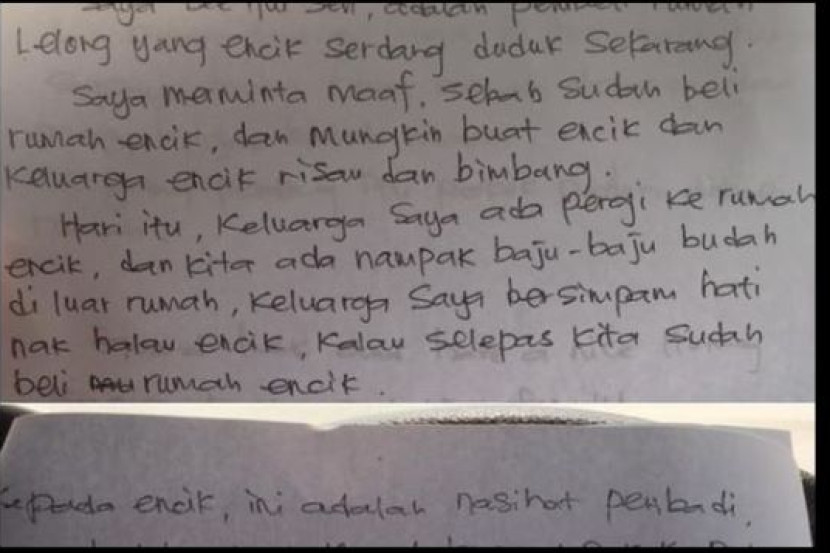 Saya
Lelong yang encik serdang duduk Sekarang.
Saya meminta maaf, sebab Sudah beli
rumah encik, dan Mungkin buat encik dan
Keluarga encik risau dan bimbang.
Hari itu, Keluarga Saya ada pergi ke rumah
encik, dan kita ada nampak baju-baju budah
di luar rumah, Keluarga Saya bersimpam hati
nak halau encik, Kalau selepas kita Sudah
beli rumah encik.
Kepada encik, ini adalah nasihat peribadi,